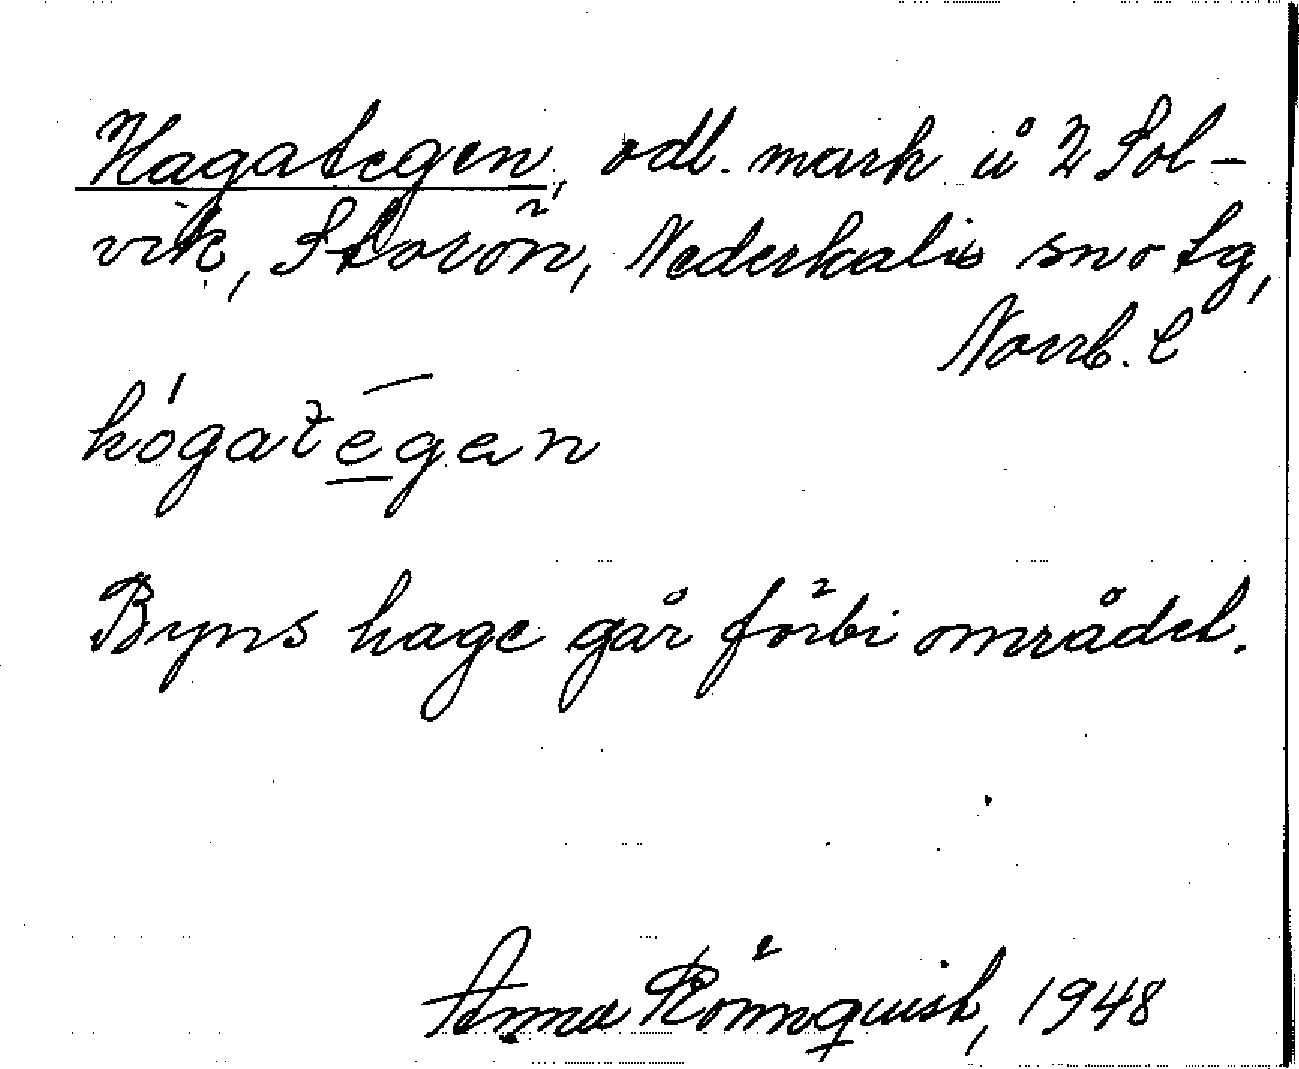 Hagategen, odl. mark å 2 Sol-
vik, Storön, Nederkalix sn o tg,
Norrb. l
hógatēgen
Byns hage går förbi området.
Anna Rönnquist, 1948